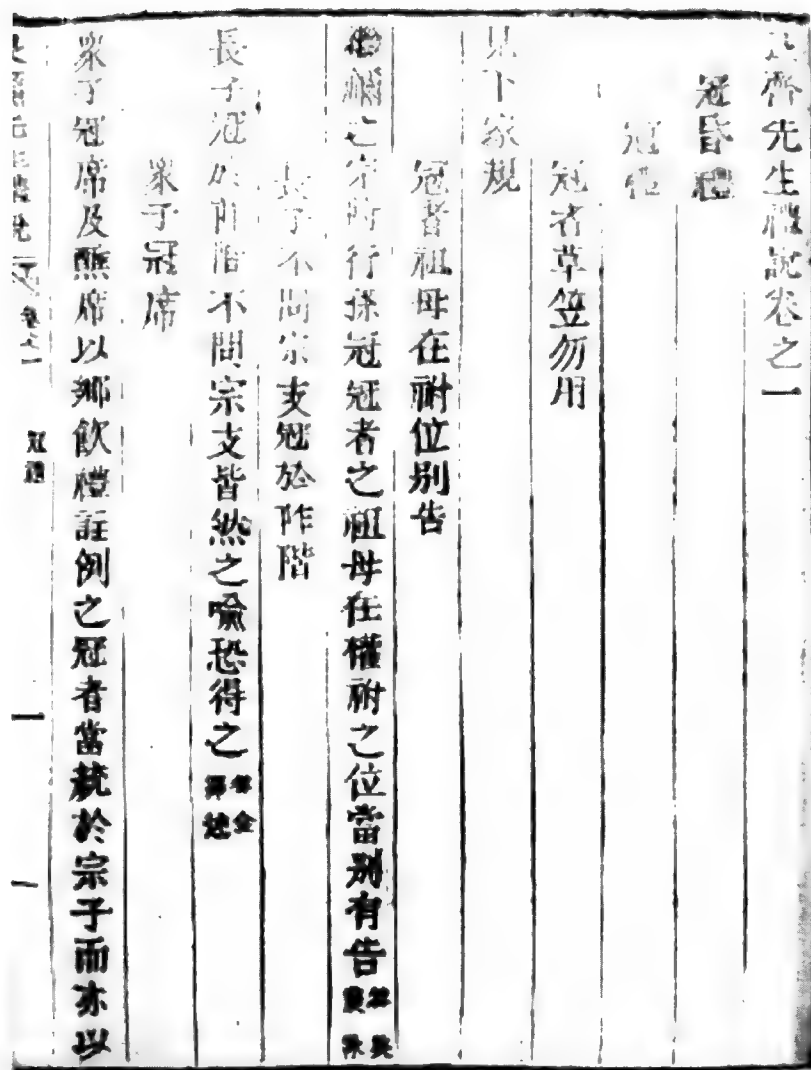 齋先生禮說卷之一
冠昏禮
冠禮
冠者草笠勿用
見下家規
冠者祖母在祔位別告
繼禰之宗將行孫冠冠者之祖母在權祔之位當別有告
長子不問宗支冠於阼階
長子冠於阼階不問宗支皆然之喩恐得之
衆子冠席
衆子冠席及醮席以鄕飮禮註例之冠者當統於宗子而亦以
先生禮說 卷之一 冠禮 一